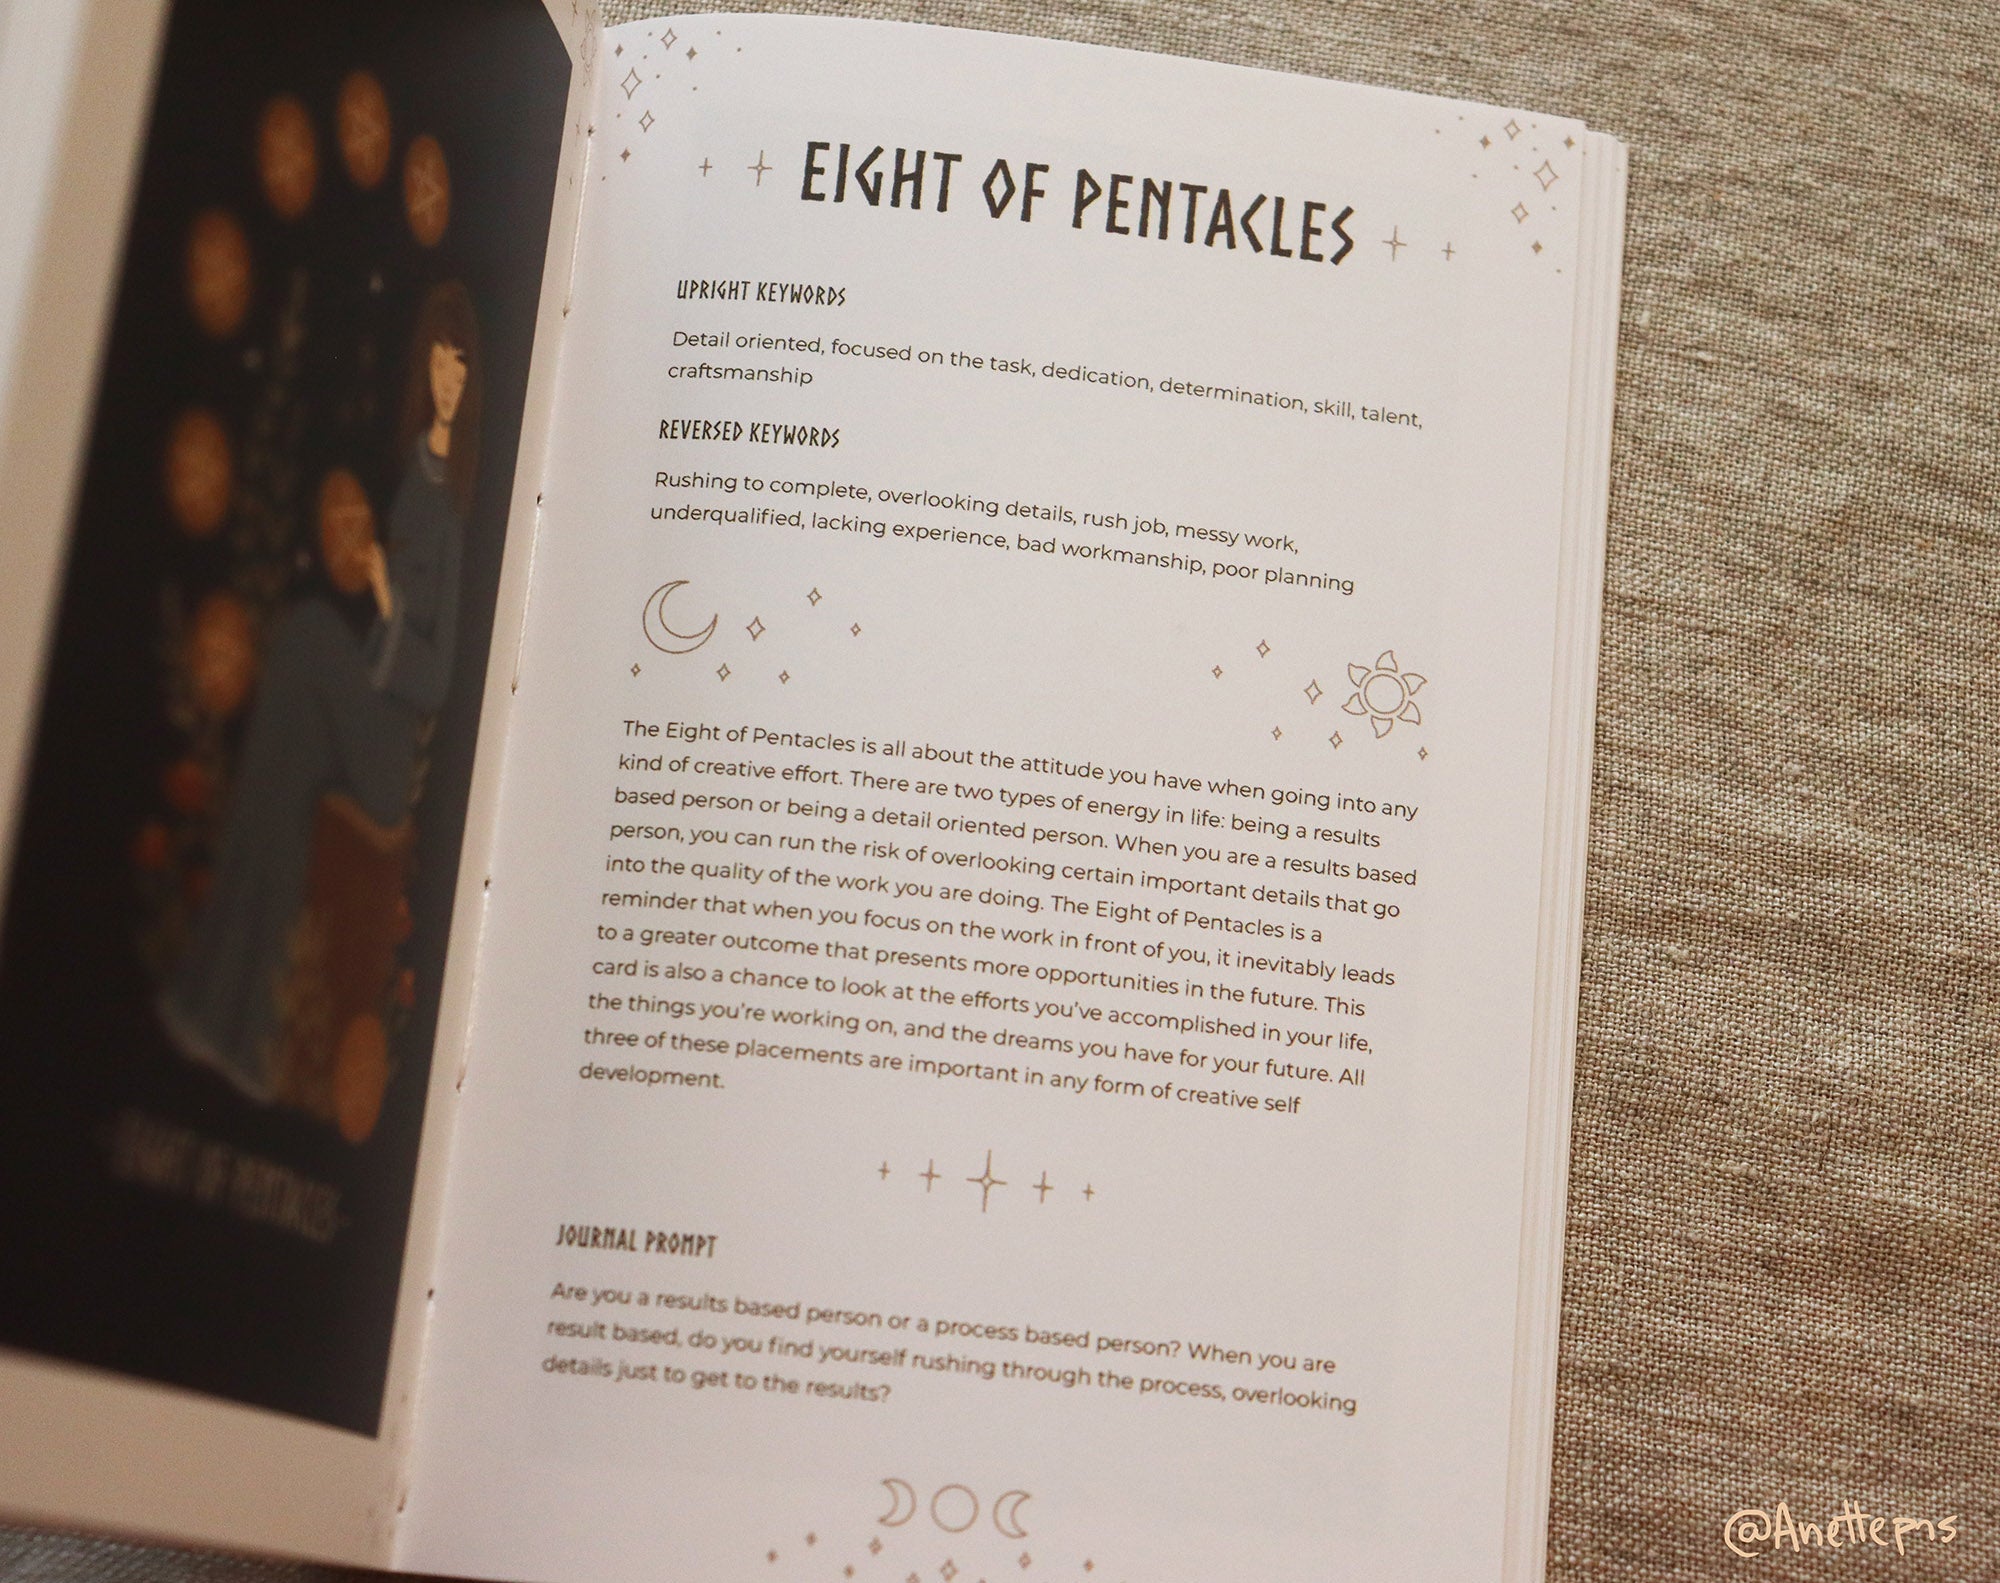 EIGHT OF PENTACLES
UPRIGHT KEYWORDS
Detail oriented, focused on the task, dedication, determination, skill, talent,
craftsmanship
REVERSED KEYWORDS
Rushing to complete, overlooking details, rush job, messy work,
underqualified, lacking experience, bad workmanship, poor planning
The Eight of Pentacles is all about the attitude you have when going into any
kind of creative effort. There are two types of energy in life: being a results
based person or being a detail oriented person. When you are a results based
person, you can run the risk of overlooking certain important details that go
into the quality of the work you are doing. The Eight of Pentacles is a
reminder that when you focus on the work in front of you, it inevitably leads
to a greater outcome that presents more opportunities in the future. This
card is also a chance to look at the efforts you've accomplished in your life,
the things you're working on, and the dreams you have for your future. All
three of these placements are important in any form of creative self
development.
JOURNAL PROMPT
Are you a results based person or a process based person? When you are
result based, do you find yourself rushing through the process, overlooking
details just to get to the results?
@Anettepns